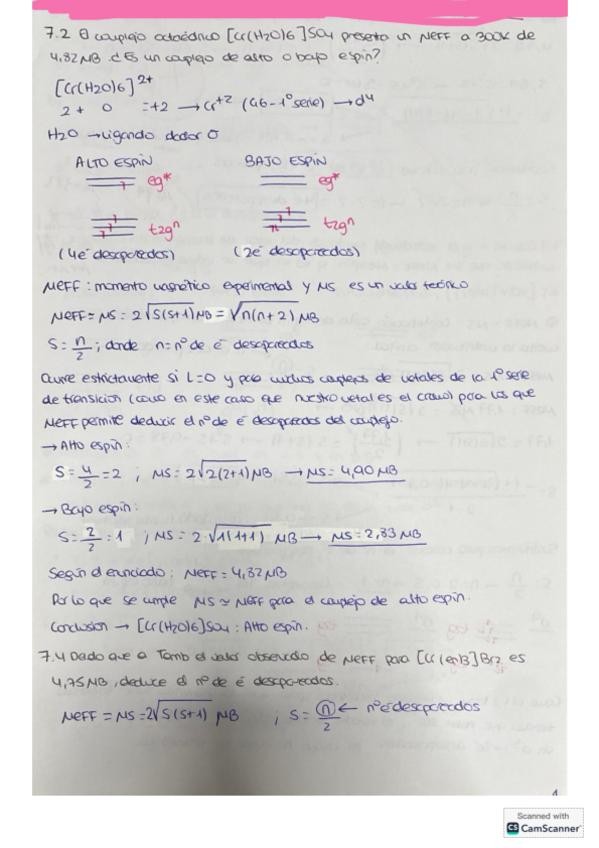 7.2 El complejo octaédrico [Cr(H2O)6]SO4 presenta un μEFF a 300K de
4,82 μB. ¿Es un complejo de alto o bajo espín?
[Cr(H2O)6]2+
2 + 0 = +2 → Cr+2 (G6 - 1º serie) → d4
H2O → Ligando dador σ
ALTO ESPÍN BAJO ESPÍN
eg* eg*
t2gn t2gn
(4é desapareados) (2é desapareados)
μEFF: momento magnético experimental y μs es un valor teórico
μEFF = μs = 2√S(S+1) μB = √n(n+2) μB
S = n/2 ; donde n = nº de é desapareados
Ocurre estrictamente si L=0 y para muchos complejos de metales de la 1ª serie
de transición (como en este caso que nuestro metal es el cromo) para los que
μEFF permite deducir el nº de é desapareados del complejo.
→ Alto espín:
S = 4/2 = 2 ; μs = 2√2(2+1) μB → μs = 4,90 μB
→ Bajo espín:
S = 2/2 = 1 ; μs = 2·√1(1+1) μB → μs = 2,83 μB
Según el enunciado; μEFF = 4,82 μB
Por lo que se cumple μs ≃ μEFF para el complejo de alto espín.
Conclusion → [Cr(H2O)6]SO4 : Alto espín.
7.4 Dado que a Tamb el valor observado de μEFF para [Cr(en)3]Br2 es
4,75 μB, deduce el nº de é desapareados.
μEFF = μs = 2√S(S+1) μB ; S = n/2 ← nº é desapareados
1
Scanned with
CS CamScanner